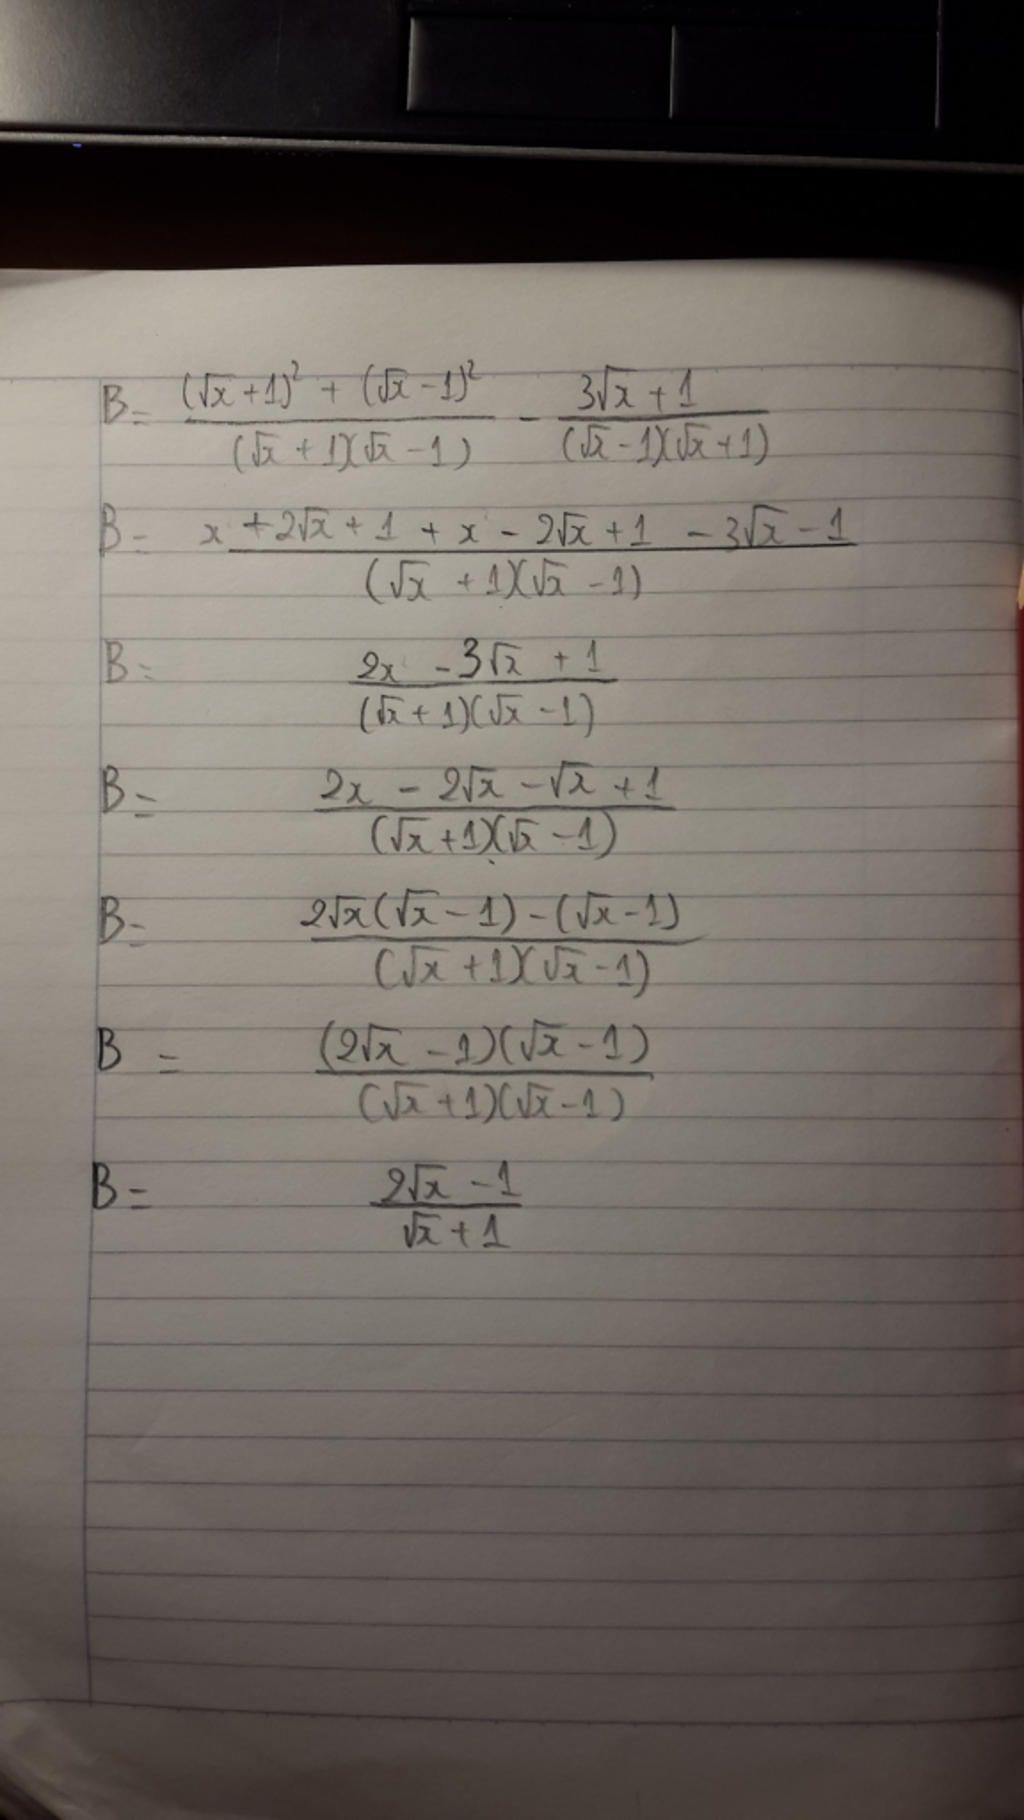 B = ((√x + 1)² + (√x - 1)²) / ((√x + 1)(√x - 1)) - (3√x + 1) / ((√x - 1)(√x + 1))
B = (x + 2√x + 1 + x - 2√x + 1 - 3√x - 1) / ((√x + 1)(√x - 1))
B = (2x - 3√x + 1) / ((√x + 1)(√x - 1))
B = (2x - 2√x - √x + 1) / ((√x + 1)(√x - 1))
B = (2√x(√x - 1) - (√x - 1)) / ((√x + 1)(√x - 1))
B = ((2√x - 1)(√x - 1)) / ((√x + 1)(√x - 1))
B = (2√x - 1) / (√x + 1)